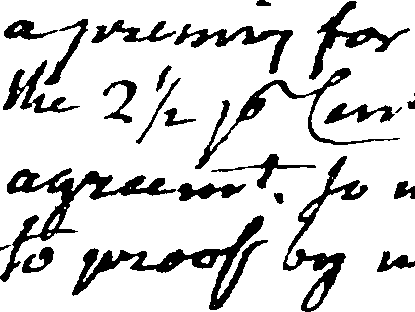 a premium for
the 2 1/2 p Cent
agreemt. So
to proof by